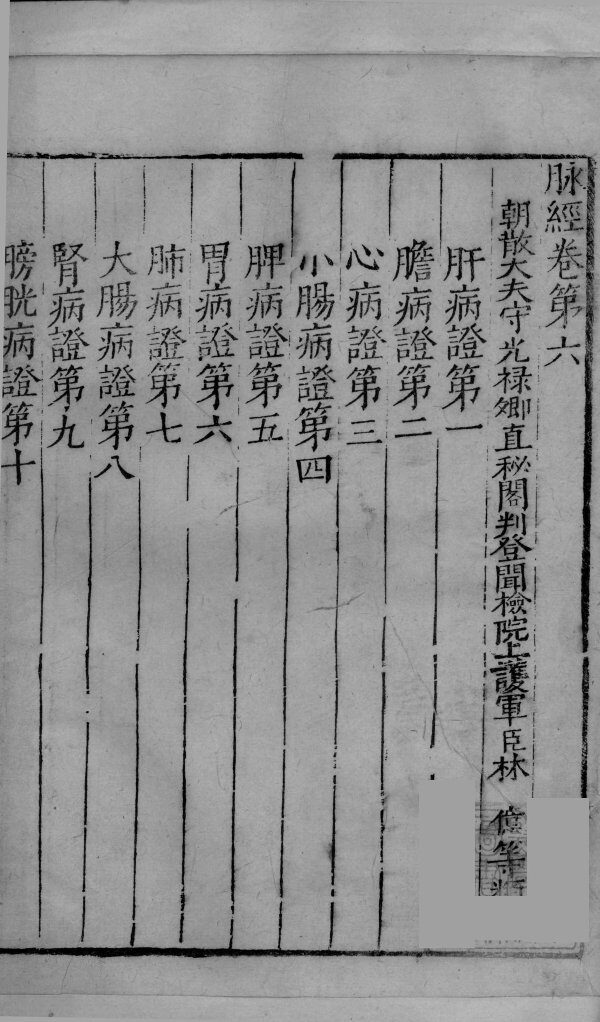 脉經卷第六
朝散大夫守光禄卿直秘閣判登聞檢院上護軍臣林 億等類
肝病證第一
膽病證第二
心病證第三
小腸病證第四
脾病證第五
胃病證第六
肺病證第七
大腸病證第八
腎病證第九
膀胱病證第十